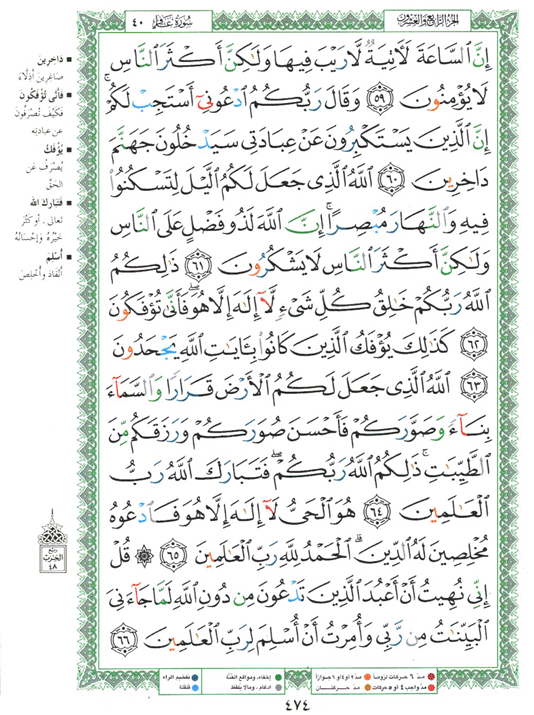 الجزء الرابع والعشرون
سورة غافر
٤٠
إِنَّ ٱلسَّاعَةَ لَأٓتِيَةٌ لَّا رَيْبَ فِيهَا وَلَٰكِنَّ أَكْثَرَ ٱلنَّاسِ
لَا يُؤْمِنُونَ ٥٩ وَقَالَ رَبُّكُمُ ٱدْعُونِىٓ أَسْتَجِبْ لَكُمْ ۚ
إِنَّ ٱلَّذِينَ يَسْتَكْبِرُونَ عَنْ عِبَادَتِى سَيَدْخُلُونَ جَهَنَّمَ
دَاخِرِينَ ٦٠ ٱللَّهُ ٱلَّذِى جَعَلَ لَكُمُ ٱلَّيْلَ لِتَسْكُنُوا۟
فِيهِ وَٱلنَّهَارَ مُبْصِرًا ۚ إِنَّ ٱللَّهَ لَذُو فَضْلٍ عَلَى ٱلنَّاسِ
وَلَٰكِنَّ أَكْثَرَ ٱلنَّاسِ لَا يَشْكُرُونَ ٦١ ذَٰلِكُمُ
ٱللَّهُ رَبُّكُمْ خَٰلِقُ كُلِّ شَىْءٍ لَّآ إِلَٰهَ إِلَّا هُوَ ۖ فَأَنَّىٰ تُؤْفَكُونَ
٦٢ كَذَٰلِكَ يُؤْفَكُ ٱلَّذِينَ كَانُوا۟ بِـَٔايَٰتِ ٱللَّهِ يَجْحَدُونَ
٦٣ ٱللَّهُ ٱلَّذِى جَعَلَ لَكُمُ ٱلْأَرْضَ قَرَارًا وَٱلسَّمَآءَ
بِنَآءً وَصَوَّرَكُمْ فَأَحْسَنَ صُوَرَكُمْ وَرَزَقَكُم مِّنَ
ٱلطَّيِّبَٰتِ ۚ ذَٰلِكُمُ ٱللَّهُ رَبُّكُمْ ۖ فَتَبَارَكَ ٱللَّهُ رَبُّ
ٱلْعَٰلَمِينَ ٦٤ هُوَ ٱلْحَىُّ لَآ إِلَٰهَ إِلَّا هُوَ فَٱدْعُوهُ
مُخْلِصِينَ لَهُ ٱلدِّينَ ۗ ٱلْحَمْدُ لِلَّهِ رَبِّ ٱلْعَٰلَمِينَ ٦٥ ۞ قُلْ
إِنِّى نُهِيتُ أَنْ أَعْبُدَ ٱلَّذِينَ تَدْعُونَ مِن دُونِ ٱللَّهِ لَمَّا جَآءَنِىَ
ٱلْبَيِّنَٰتُ مِن رَّبِّى وَأُمِرْتُ أَنْ أُسْلِمَ لِرَبِّ ٱلْعَٰلَمِينَ ٦٦
▪ دَاخِرِينَ
صَاغِرِينَ أَذِلَّاءَ
▪ فَأَنَّى تُؤْفَكُون
فَكَيْفَ تُصْرَفُونَ
عن عِبادَتِهِ
▪ يُؤْفَكُ
يُصْرَفُ عَن
الحَقِّ
▪ فَتَبَارَكَ الله
تَعَالَى. أو كَثُرَ
خَيْرُهُ وَإِحْسَانُهُ
▪ أُسْلِمَ
أَنْقَادَ وأُخْلِصَ
ربع
الحزب
٤٨
مدّ ٦ حركات لزوماً
مدّ ٢ أو ٤ أو ٦ جوازاً
مدّ واجب ٤ أو ٥ حركات
مدّ حركتان
إخفاء، ومواقع الغُنَّة
إدغام، وما لا يُلفَظ
تفخيم الراء
قلقلة
٤٧٤